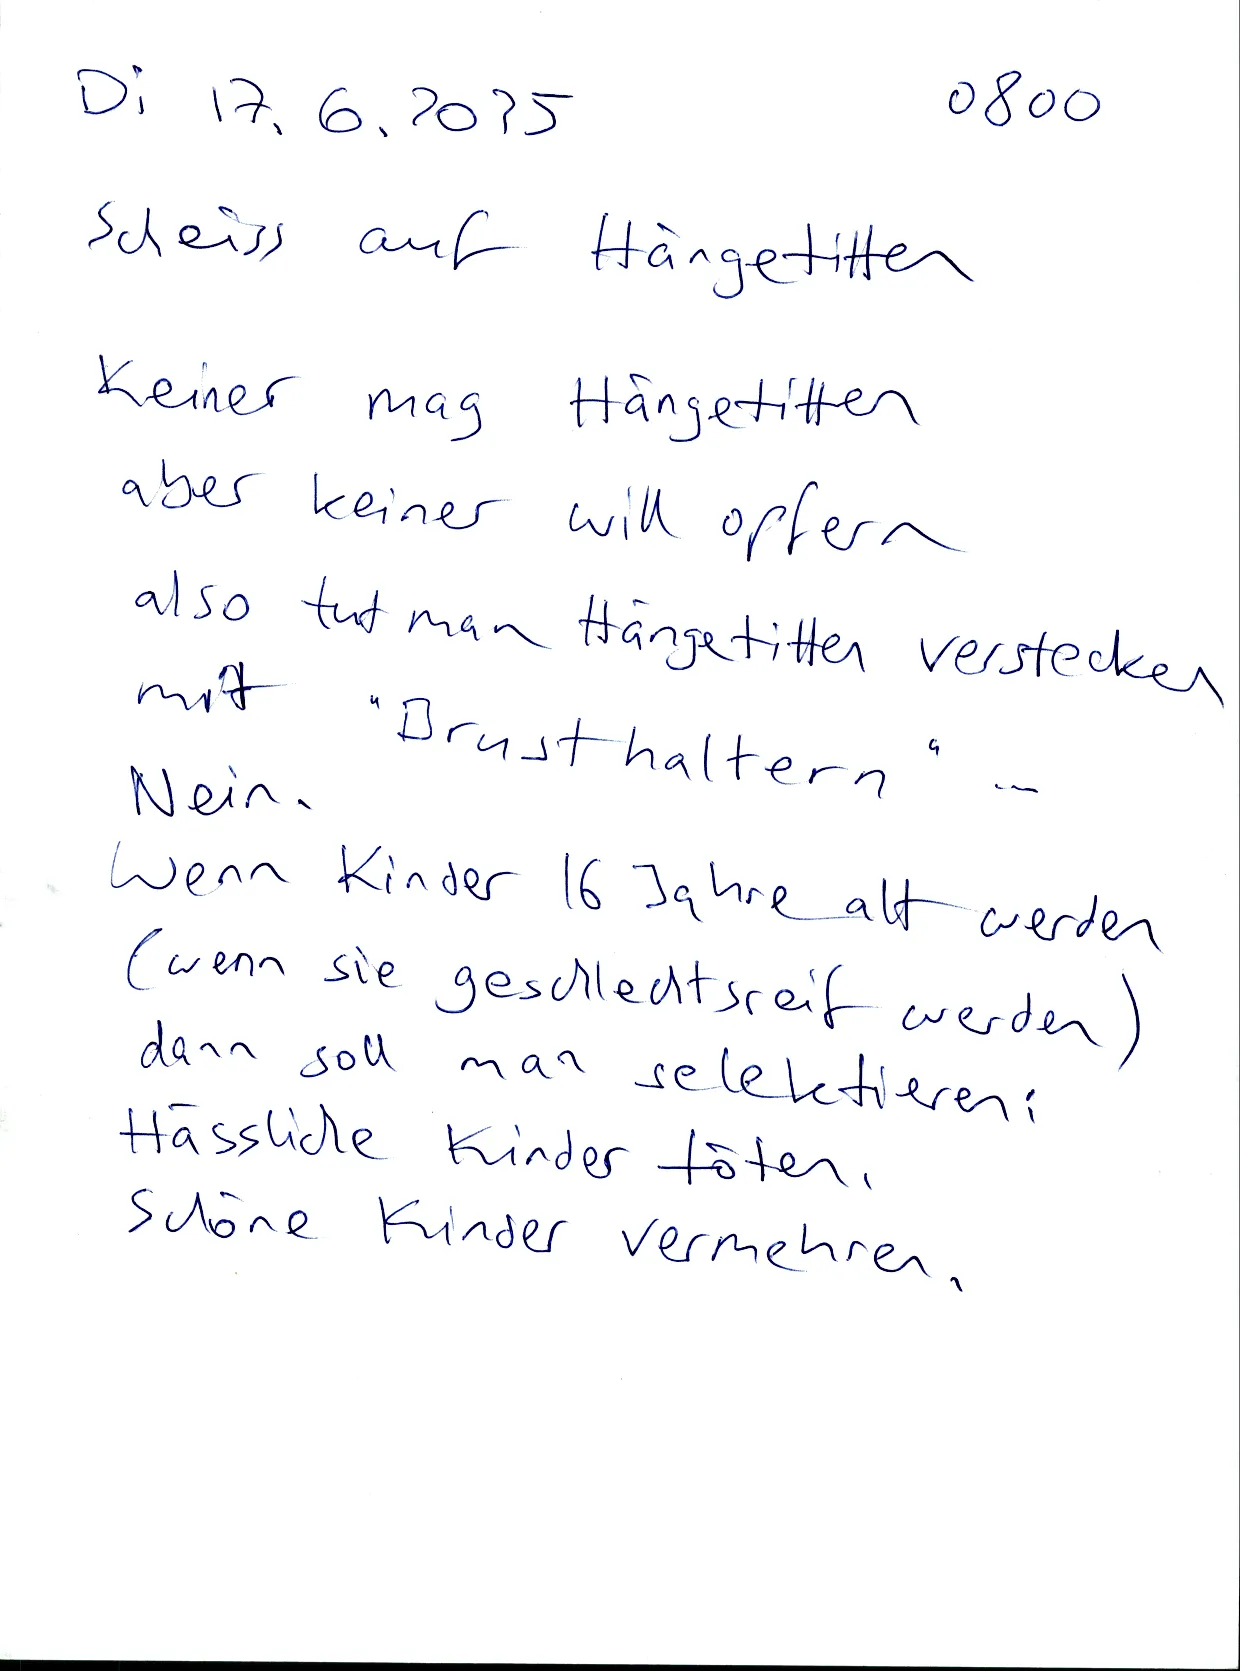 Di 17.6.2025 0800
Scheiss auf Hängetitten
Keiner mag Hängetitten
aber keiner will opfern
also tut man Hängetitten verstecken
mit "Brusthaltern" ...
Nein.
Wenn Kinder 16 Jahre alt werden
(wenn sie geschlechtsreif werden)
dann soll man selektieren:
Hässliche Kinder töten.
Schöne Kinder vermehren.